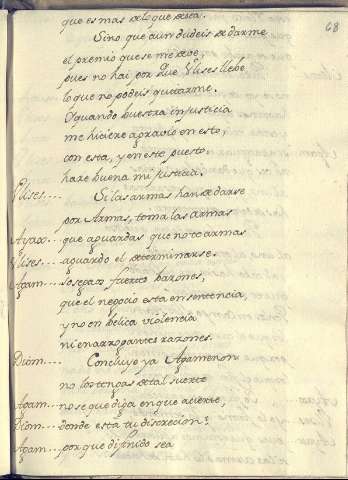 68
que es mas de lo que dista.
Sino que aun dudeis de darme
el premio que se me deve,
pues no hai por que Ulises llebe
lo que no podeis quitarme.
Y quando buestra injusticia
me hiciere agravio en esto,
con esta, y en este puesto
hare buena mi justicia.
Ulises.... Si las armas han de darse
por Armas, toma las armas
Ayax... que aguardas que no te armas
Ulises... aguardo el determinarse.
Agam... Sosegaos fuertes barones,
que el negocio está en sentencia,
y no en belica violencia
ni en arrogantes razones.
Diom.... Concluye ya Agamenon
no los tengas de tal suerte
Agam... no se que diga en que acierte,
Diom... donde esta tu discrecion?
Agam... porque difinido sea